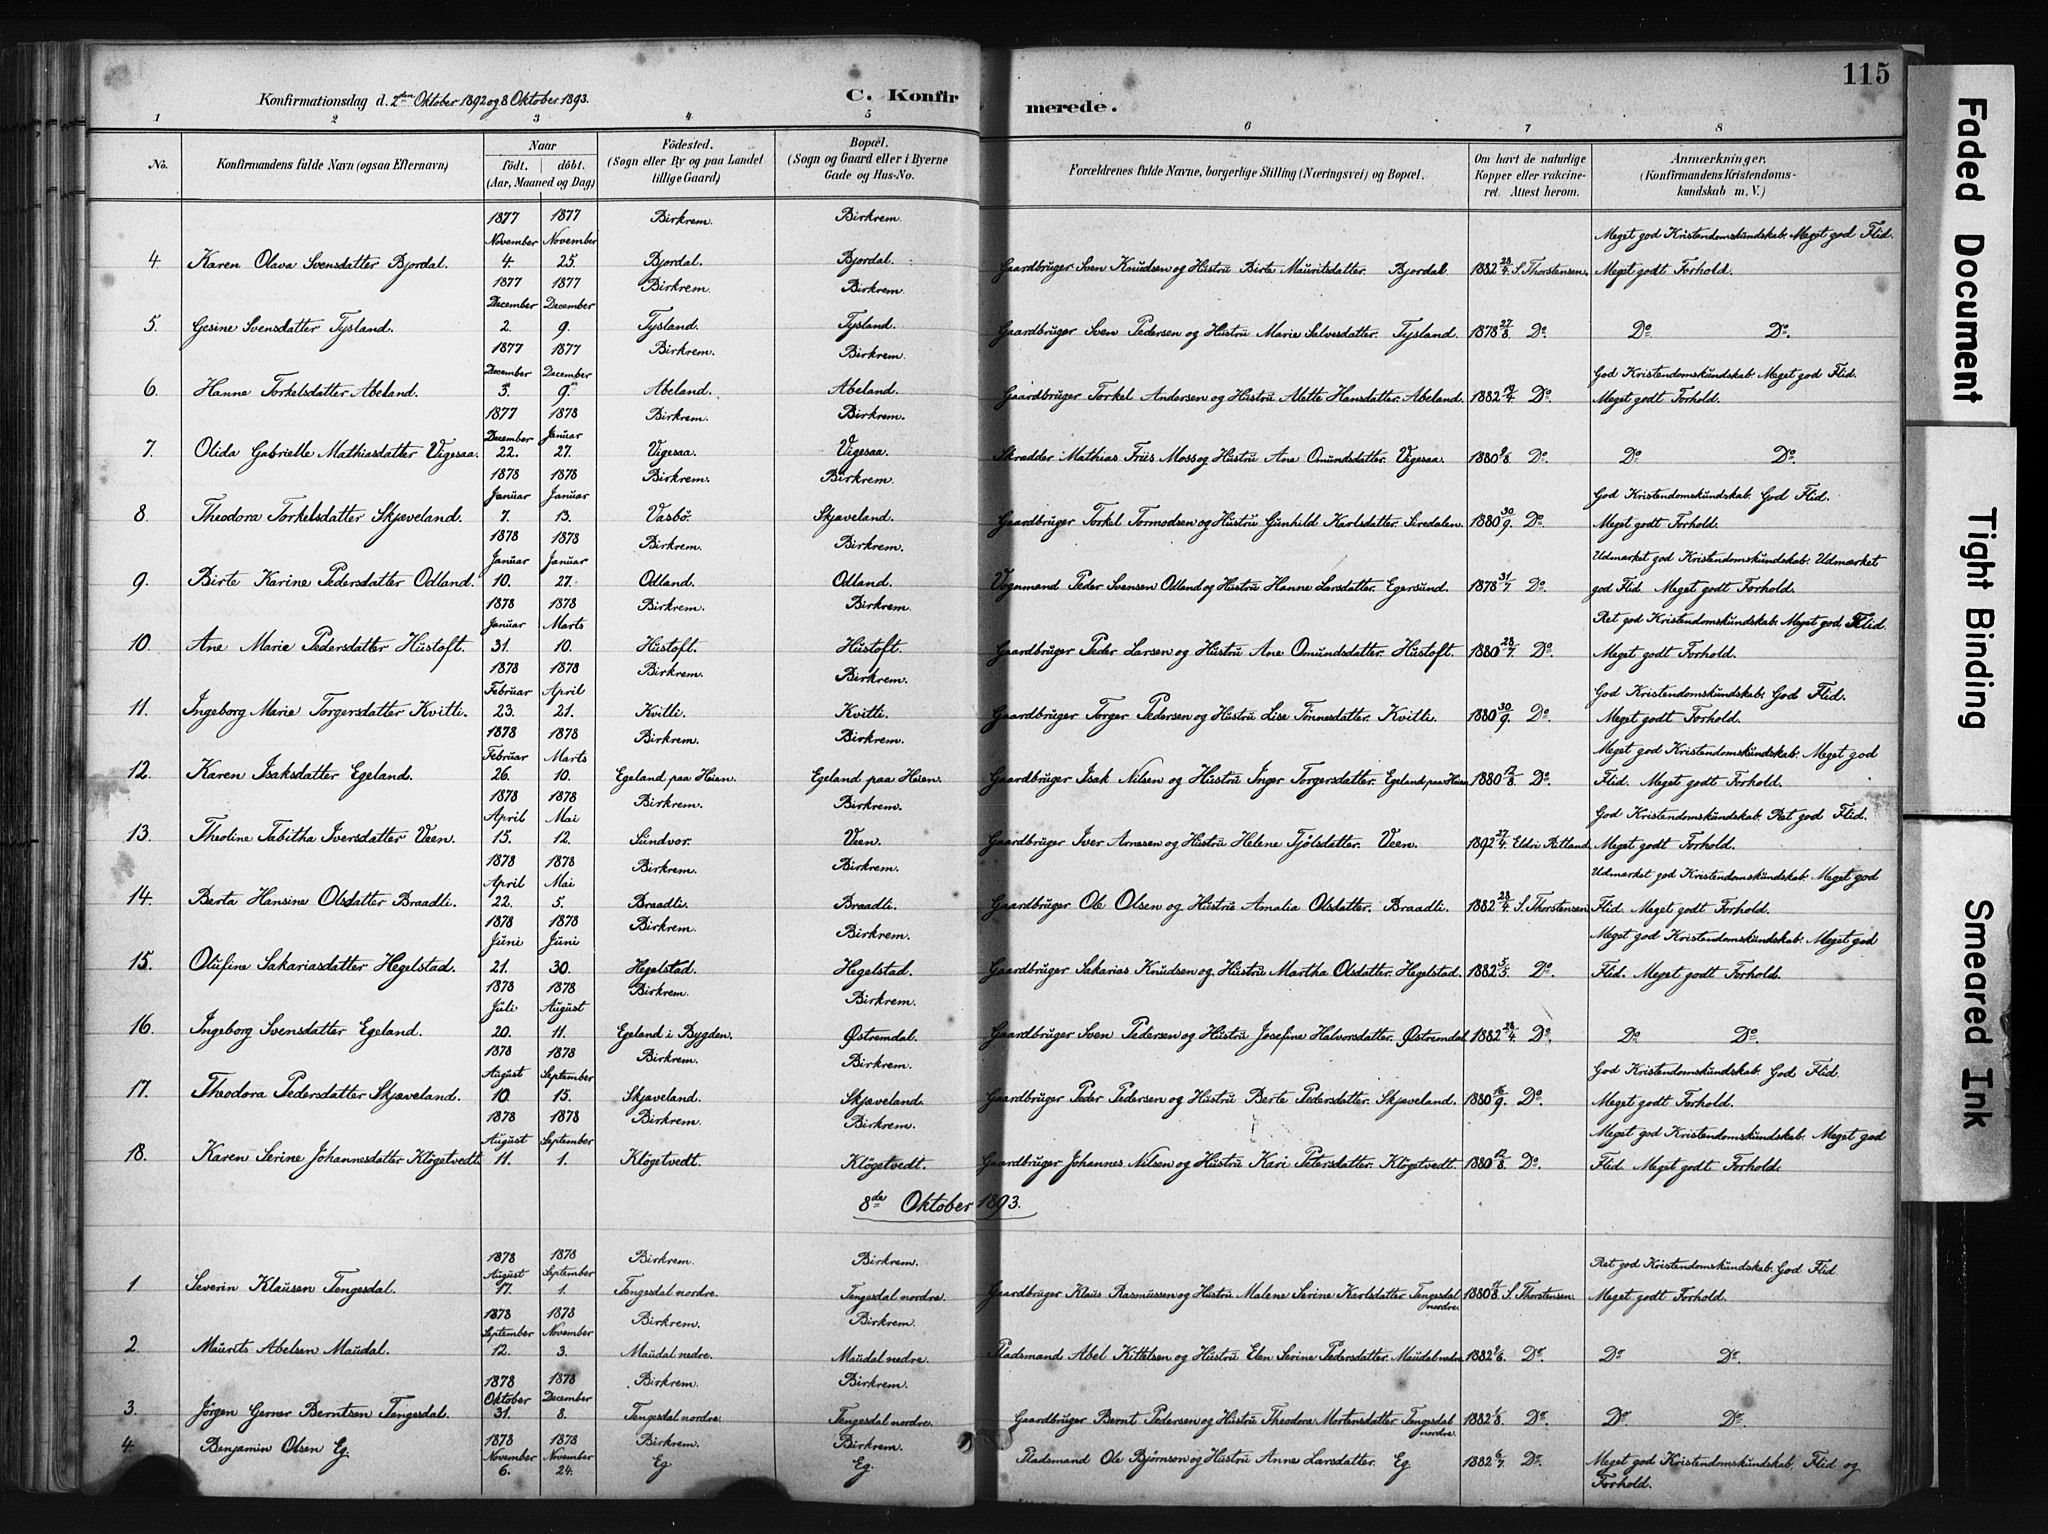 115
Konfirmationsdag d. 2den Oktober 1892 og 8 Oktober 1893.
C. Konfirmerede.
1 2 3 4 5 6 7 8
No. Konfirmandens fulde Navn (ogsaa Efternavn) Naar födt. döbt. (Aar, Maaned og Dag) Födested. (Sogn eller By og paa Landet tillige Gaard) Bopæl. (Sogn og Gaard eller i Byerne Gade og Hus-No. Forældrenes fulde Navne, borgerlige Stilling (Næringsvei) og Bopæl. Om havt de naturlige Kopper eller vakcineret. Attest herom. Anmærkninger. (Konfirmandens Kristendomskundskab m. V.)
1877 1877 Birkrem. Birkrem.
November November Meget god Kristendomskundskab. Meget god Flid.
4. Karen Olava Svensdatter Bjordal. 4. 25. Bjordal. Bjordal. Gaardbruger Sven Knudsen og Hustru Birte Mauritsdatter. Bjordal 1882 28/4. S. Thorstensen. Meget godt Forhold.
1877 1877 Birkrem. Birkrem.
December December
5. Gesine Svensdatter Tysland. 2. 9. Tysland. Tysland. Gaardbruger Sven Pedersen og Hustru Marie Salvesdatter. Tysland. 1878 27/8. Do. Do Do.
1877 1877 Birkrem. Birkrem.
December December God Kristendomskundskab. Meget god Flid.
6. Hanne Torkelsdatter Abeland. 3. 9. Abeland. Abeland. Gaardbruger Torkel Andersen og Hustru Alette Hansdatter. Abeland. 1882 19/4 Do. Meget godt Forhold.
1877 1878 Birkrem. Birkrem.
December Januar
7. Olida Gabrielle Mathiasdatter Vigesaa. 22. 27. Vigesaa. Vigesaa. Skrædder Mathias Friis Moss og Hustru Ane Omundsdatter. Vigesaa. 1880 9/8. Do. Do Do.
1878 1878 Birkrem. Birkrem.
Januar Januar God Kristendomskundskab. God Flid.
8. Theodora Torkelsdatter Skjæveland. 7. 13. Vasbö. Skjæveland. Gaardbruger Torkel Tormodsen og Hustru Gunhild Karlsdatter. Siredalen. 1880 30/9. Do. Meget godt Forhold.
1878 1878 Birkrem. Birkrem.
Januar Januar Udmærket god Kristendomskundskab. Udmærket
9. Birte Karine Pedersdatter Odland. 10. 27. Odland. Odland. Vognmand Peder Svensen Odland og Hustru Hanne Larsdatter. Egersund. 1878 31/7 Do. god Flid. Meget godt Forhold.
1878 1878 Birkrem. Birkrem.
Januar Marts Ret god Kristendomskundskab. Meget god Flid.
10. Ane Marie Pedersdatter Hustoft. 31. 10. Hustoft. Hustoft. Gaardbruger Peder Larsen og Hustru Ane Omundsdatter. Hustoft. 1880 28/7. Do. Meget godt Forhold.
1878 1878 Birkrem. Birkrem.
Februar April God Kristendomskundskab. God Flid.
11. Ingeborg Marie Torgersdatter Kvitli. 23. 21. Kvitli. Kvitli. Gaardbruger Torger Pedersen og Hustru Lise Tönnesdatter. Kvitli. 1880 30/9. Do. Meget godt Forhold.
1878 1878 Birkrem. Birkrem.
Februar Marts Meget god Kristendomskundskab. Meget god
12. Karen Isaksdatter Egeland. 26. 10. Egeland paa Heien. Egeland paa Heien. Gaardbruger Isak Nilsen og Hustru Inger Torgersdatter. Egeland paa Heien 1880 12/8. Do. Flid. Meget godt Forhold.
1878 1878 Birkrem. Birkrem.
April Mai God Kristendomskundskab. Ret god Flid.
13. Theoline Tabitha Iversdatter Veen. 15. 12. Sundvor. Veen. Gaardbruger Iver Arnesen og Hustru Helene Tjölsdatter. Veen. 1892 27/4. Eldri Retland. Meget godt Forhold.
1878 1878 Birkrem. Birkrem.
April Mai Udmærket god Kristendomskundskab. Meget god
14. Berta Hansine Olsdatter Braadli. 22. 5. Braadli. Braadli. Gaardbruger Ole Olsen og Hustru Amalia Olsdatter. Braadli. 1882 28/4. S. Thorstensen. Flid. Meget godt Forhold.
1878 1878 Birkrem. Birkrem.
Juni Juni Meget god Kristendomskundskab. Meget god
15. Olufine Sakariasdatter Hegelstad. 21. 30. Hegelstad. Hegelstad. Gaardbruger Sakarias Knudsen og Hustru Martha Olsdatter. Hegelstad. 1882 5/5. Do. Flid. Meget godt Forhold.
1878 1878 Birkrem. Birkrem.
Juli August
16. Ingeborg Svensdatter Egeland. 20. 11. Egeland i Bygden. Østremdal. Gaardbruger Sven Pedersen og Hustru Josefine Halvorsdatter. Østremdal 1882 28/4. Do. Do Do.
1878 1878 Birkrem. Birkrem.
August September God Kristendomskundskab. God Flid.
17. Theodora Pedersdatter Skjæveland. 10 15. Skjæveland. Skjæveland. Gaardbruger Peder Pedersen og Hustru Berte Pedersdatter. Skjæveland. 1880 16/9. Do. Meget godt Forhold.
1878 1878 Birkrem. Birkrem.
August September Meget god Kristendomskundskab. Meget god
18. Karen Serine Johannesdatter Klögetvedt. 11. 1. Klögetvedt. Klögetvedt. Gaardbruger Johannes Nilsen og Hustru Kari Petersdatter. Klögetvedt. 1880 12/8. Do. Flid. Meget godt Forhold.
8de Oktober 1893.
1878 1878 Birkrem. Birkrem.
August September Ret god Kristendomskundskab. God Flid
1 Severin Klausen Tengesdal. 17. 1. Tengesdal nordre. Tengesdal nordre. Gaardbruger Klaus Rasmussen og Hustru Malene Serine Karlsdatter. Tengesdal nordre. 1880 S. Thorstensen. Meget godt Forhold.
1878 1878 Birkrem. Birkrem.
September November
2. Maurits Abelsen Maudal. 12. 3. Maudal nedre. Maudal nedre. Pladsmand Abel Kittelsen og Hustru Elen Serine Pedersdatter. Maudal nedre 1882 9/6. Do. Do Do.
1878 1878 Birkrem. Birkrem.
Oktober December
3. Jörgen Gerner Berntsen Tengesdal. 31. 8. Tengesdal nordre. Tengesdal nordre. Gaardbruger Bernt Pedersen og Hustru Theodora Mortensdatter. Tengesdal nordre. 1882 1/8. Do. Do Do.
4. Benjamin Olsen Eg. 1878 1878 Birkrem. Birkrem.
November November
6. 24. Eg Eg. Pladsmand Ole Björnsen og Hustru Anne Larsdatter. Eg 1882 6/7. Do. Meget god Kristendomskundskab, Flid og
Forhold.
Faded Document
Tight Binding
Smeared Ink